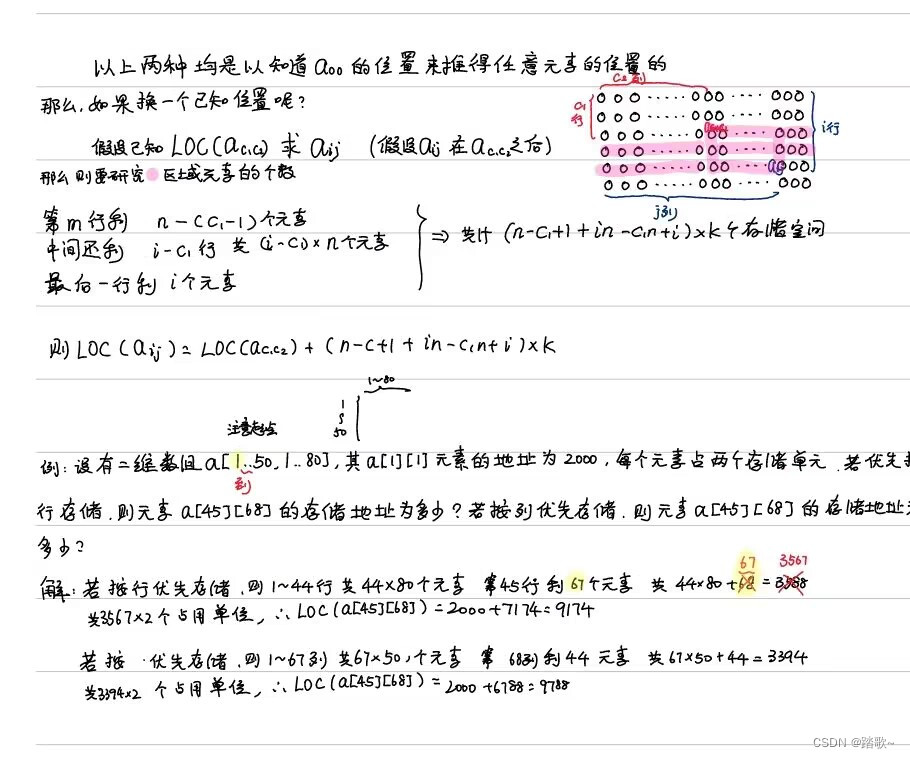 以上两种均是以知道a₀₀的位置来推得任意元素的位置的
那么,如果换一个已知位置呢?
C₂列
C₁行
i行
aij
j列
假设已知 LOC(ac₁c₂) 求 aij (假设aij 在ac₁c₂之后)
那么则要研究 区域元素的个数
第m行剩 n-(C₁-1)个元素
中间还剩 i-C₁行 共(i-C₁)×n个元素
最后一行剩 i个元素
⇒ 共计 (n-C₁+1+in-C₁n+i)×k个存储空间
则 LOC(aij)=LOC(ac₁c₂)+(n-C+1+in-C₁n+i)×k
1~80
1
50
注意起点
例:设有二维数组a[1..50,1..80],其a[1][1]元素的地址为2000,每个元素占两个存储单元.若优先
到
行存储.则元素a[45][68]的存储地址为多少?若按列优先存储.则元素a[45][68]的存储地址
多少?
67 3567
解:若按行优先存储.则1~44行共44×80个元素 第45行剩67个元素 共44×80+68=3588
共3567×2个占用单位,∴LOC(a[45][68])=2000+7174=9174
若按 优先存储.则1~67列共67×50个元素 第68列剩44元素 共67×50+44=3394
共3394×2个占用单位,∴LOC(a[45][68])=2000+6788=9788
CSDN @踏歌~